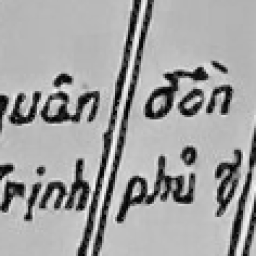 quân đồn
Trịnh phủ